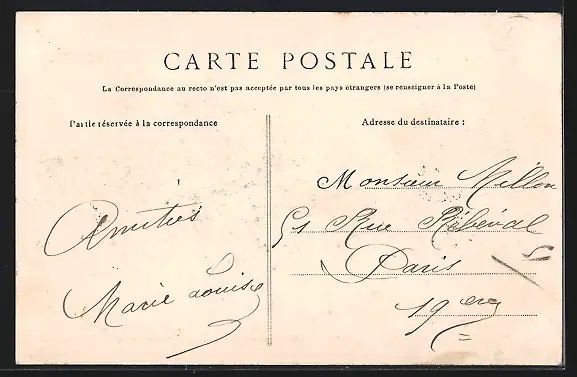 CARTE POSTALE
La Correspondance au recto n'est pas acceptée par tous les pays étrangers (se renseigner à la Poste)
Partie réservée à la correspondance
Amitiés
Marie Louise
Adresse du destinataire :
Monsieur Millon
51 Rue Rébeval
Paris
19